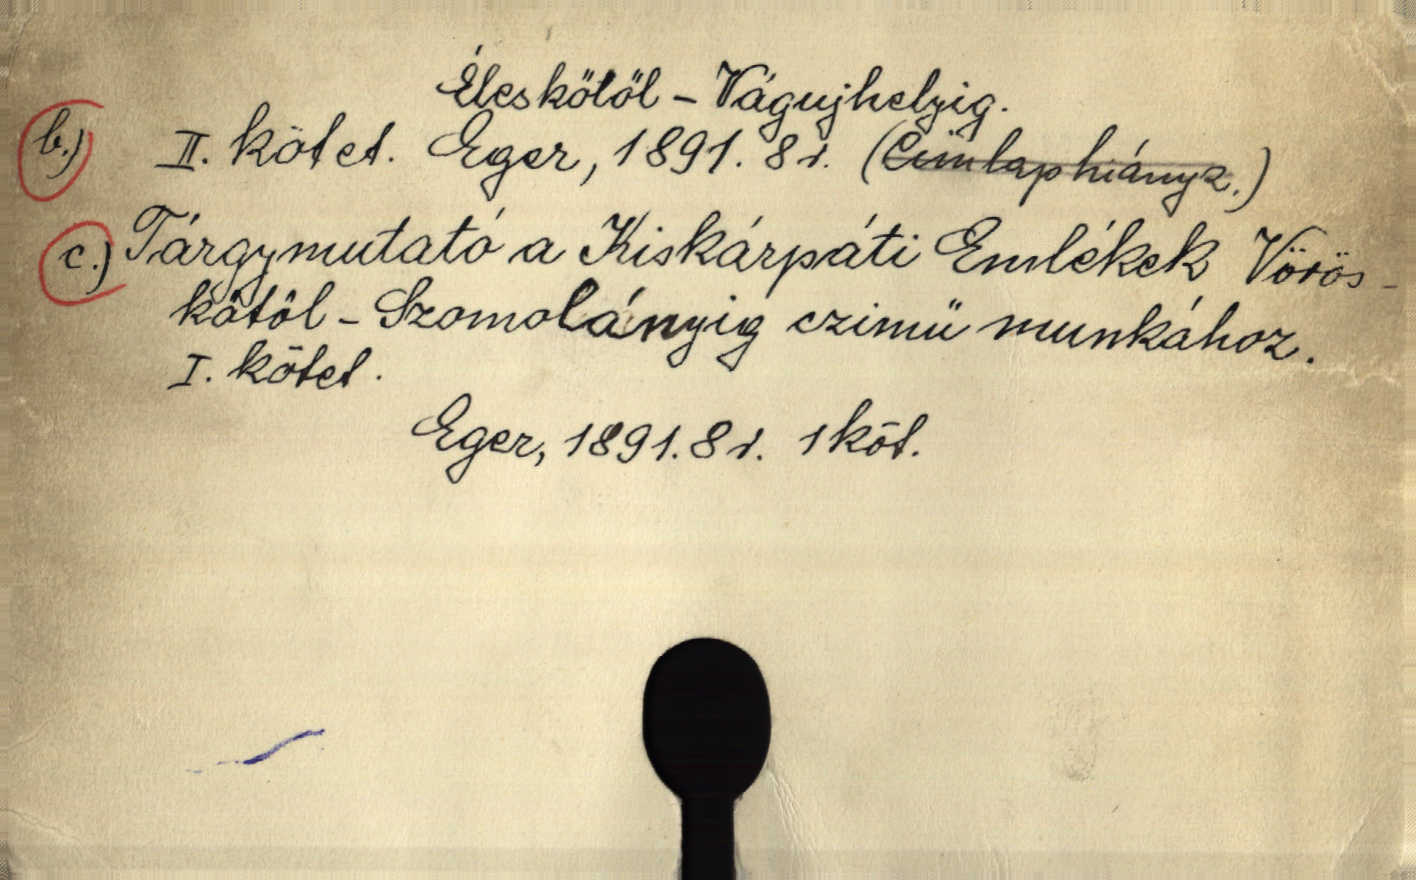 Éleskőtől - Vágujhelyig.
b.) II. kötet. Eger, 1891. 8 r. (Cimlap hiányz.)
c.) Tárgymutató a Kiskárpáti Emlékek Vörös-
kőtől - Szomolányig czimü munkához.
I. kötet.
Eger, 1891. 8 r. 1 köt.